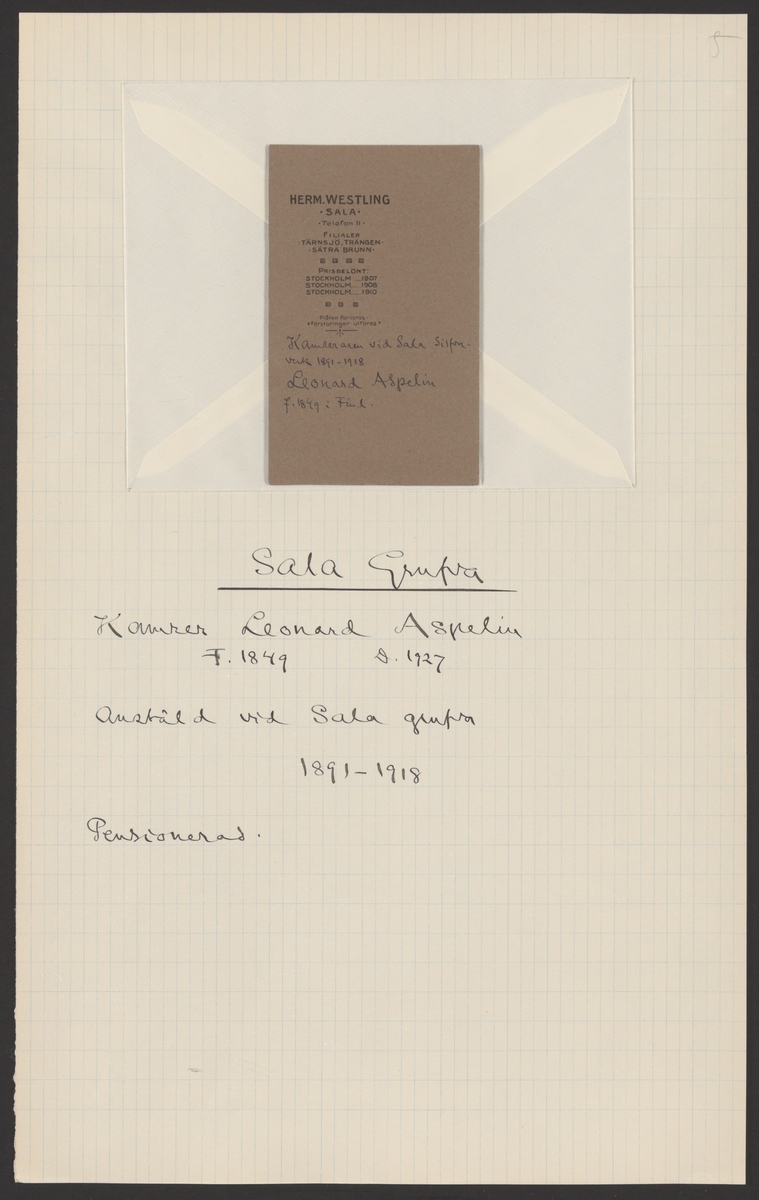 5
HERM. WESTLING
·SALA·
·Telefon 11·
FILIALER
·TÄRNSJÖ, TRÄNGEN·
·SÄTRA BRUNN·
PRISBELÖNT:
STOCKHOLM....1907
STOCKHOLM....1908
STOCKHOLM....1910
·Plåten förvaras·
·Förstoringar utföras·
Kamreraren vid Sala Silfver-
verk 1891-1918
Leonard Aspelin
f. 1849 i Finl.
Sala Grufva
Kamrer Leonard Aspelin
F. 1849 D. 1927
Anstäld vid Sala grufva
1891-1918
Pensionerad.